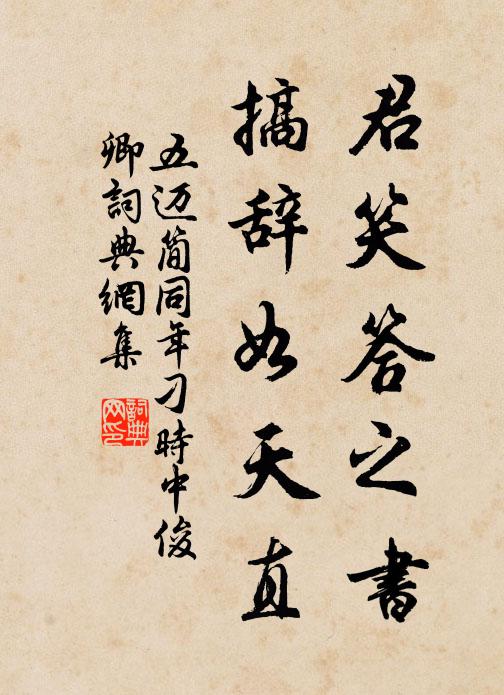 君笑答之書
搞辞如天真
五迈简同年刁時中俊
卿詞典網集
詞典
网印